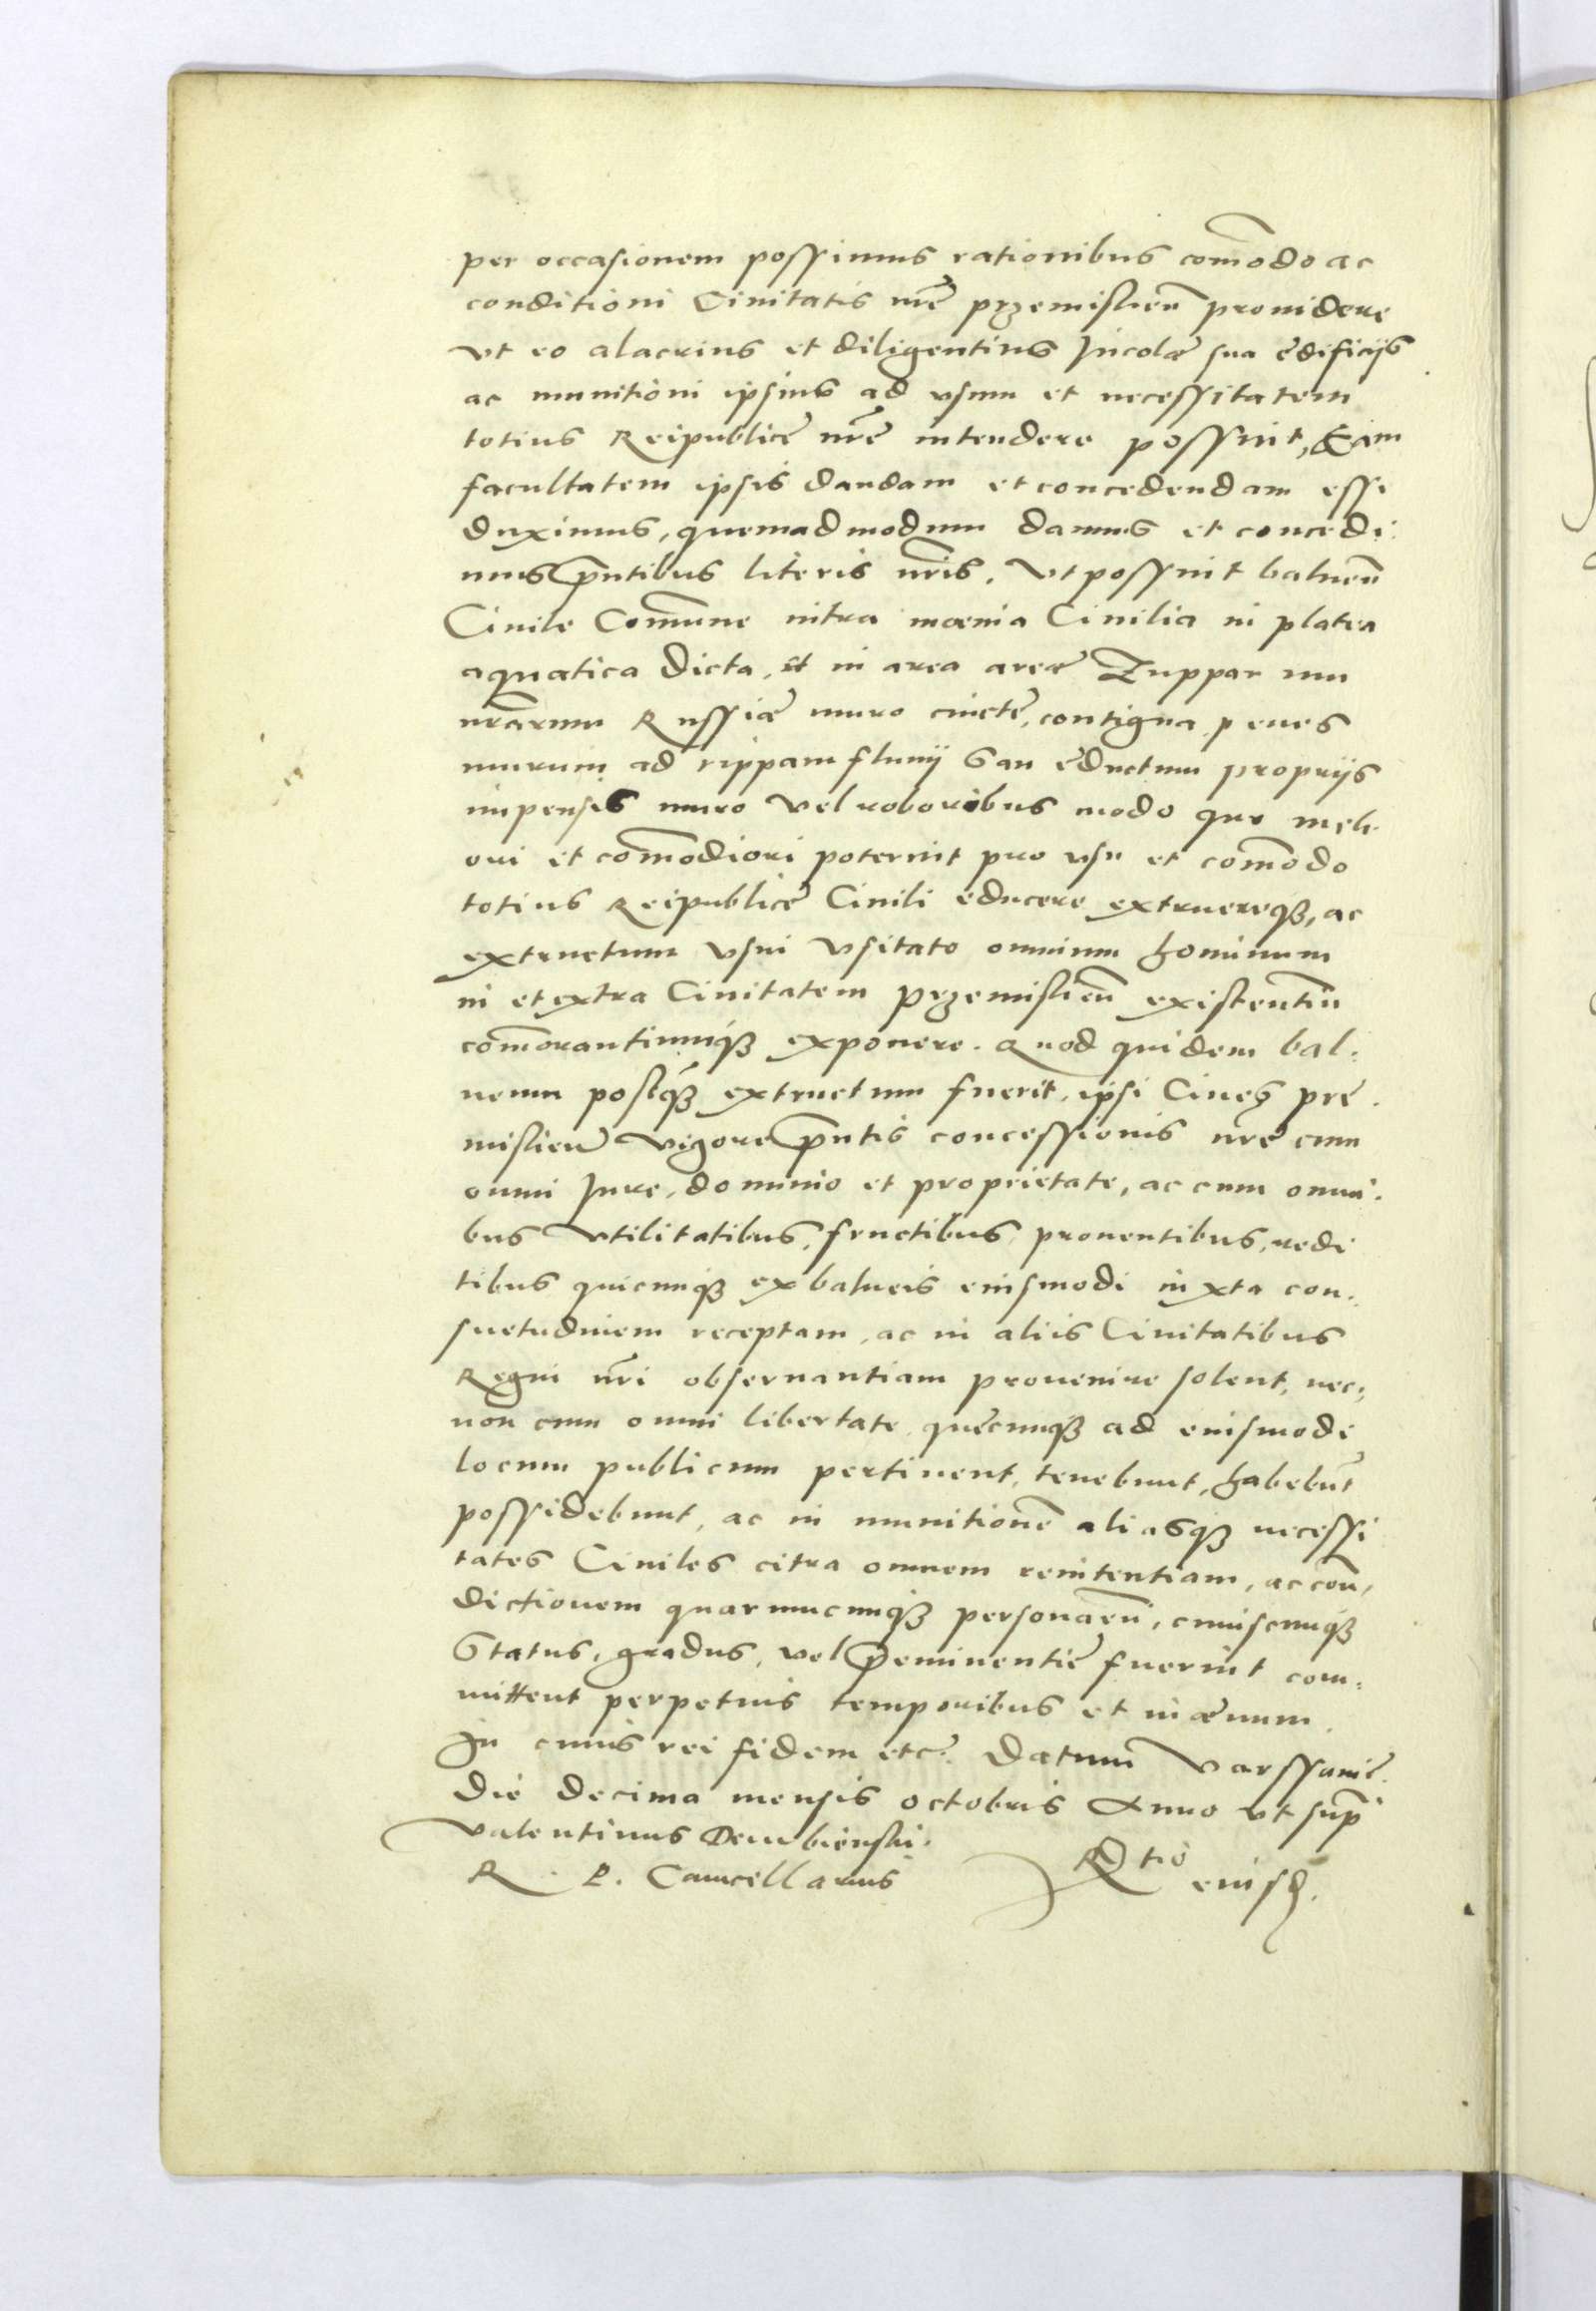 per occasionem possimus rationibus com̃odo ac
conditioni Ciuitatis nr̃e przemislien̄ prouidere
vt eo alacrius et diligentius Jncolæ sua ędificijs
ac munitioni ipsius ad vsum et necessitatem
totius Reipublicę nr̃ę intendere possint, Eam
facultatem ipsis dandam et concedendam esse
duximus, quemadmodum damus et concedi-
mus p̃ntibus literis nr̃is. Vt possint balneū
Ciuile Com̃une intra mœnia Ciuilia in platea
aquatica dicta, et in area areæ Zuppar um
nrarum Russiæ muro cinctę, contigua penes
murum ad rippam fluuij San ęductum propriis
impensis muro vel roboribus modo quo meli-
ori et com̃odiori poterint pro vsu et com̃odo
totius Reipublicę Ciuili educere extruereq3, ac
extructum vsui vsitato omnium hominum
in et extra Ciuitatem przemislien̄ existentiū
com̃orantiumq3 exponere. Quod quidem bal-
neum postq3 extructum fuerit, ipsi Ciues pre-
mislien̄ vigore p̃ntis concessionis nr̃ę cum
omni Jure, dominio et proprietate, ac cum omni-
bus vtilitatibus, fructibus prouentibus, redi
tibus quicunq3 ex balneis eiusmodi iuxta con-
suetudinem receptam, ac in aliis Ciuitatibus
Regni nr̃i obseruantiam prouenire solent, nec-
non cum omni libertate quęcunq3 ad eiusmodi
locum publicum pertinent, tenebunt, habebunt
possidebunt, ac in munitionē aliasq3 necessi
tates Ciuiles citra omnem renitentiam, ac con̄-
dictionem quarumcunq3 personarū, cuiuscunq3
Status, gradus, vel p̃eminentię fuerint com-
mittent perpetuis temporibus et in æuum.
Jn cuius rei fidem etc̃. Datum Varssauię.
die decima mensis octobris Anno vt sup̃
Valentinus Dembienski.
R. P. Cancellarius
R̃tio eiusd̃.